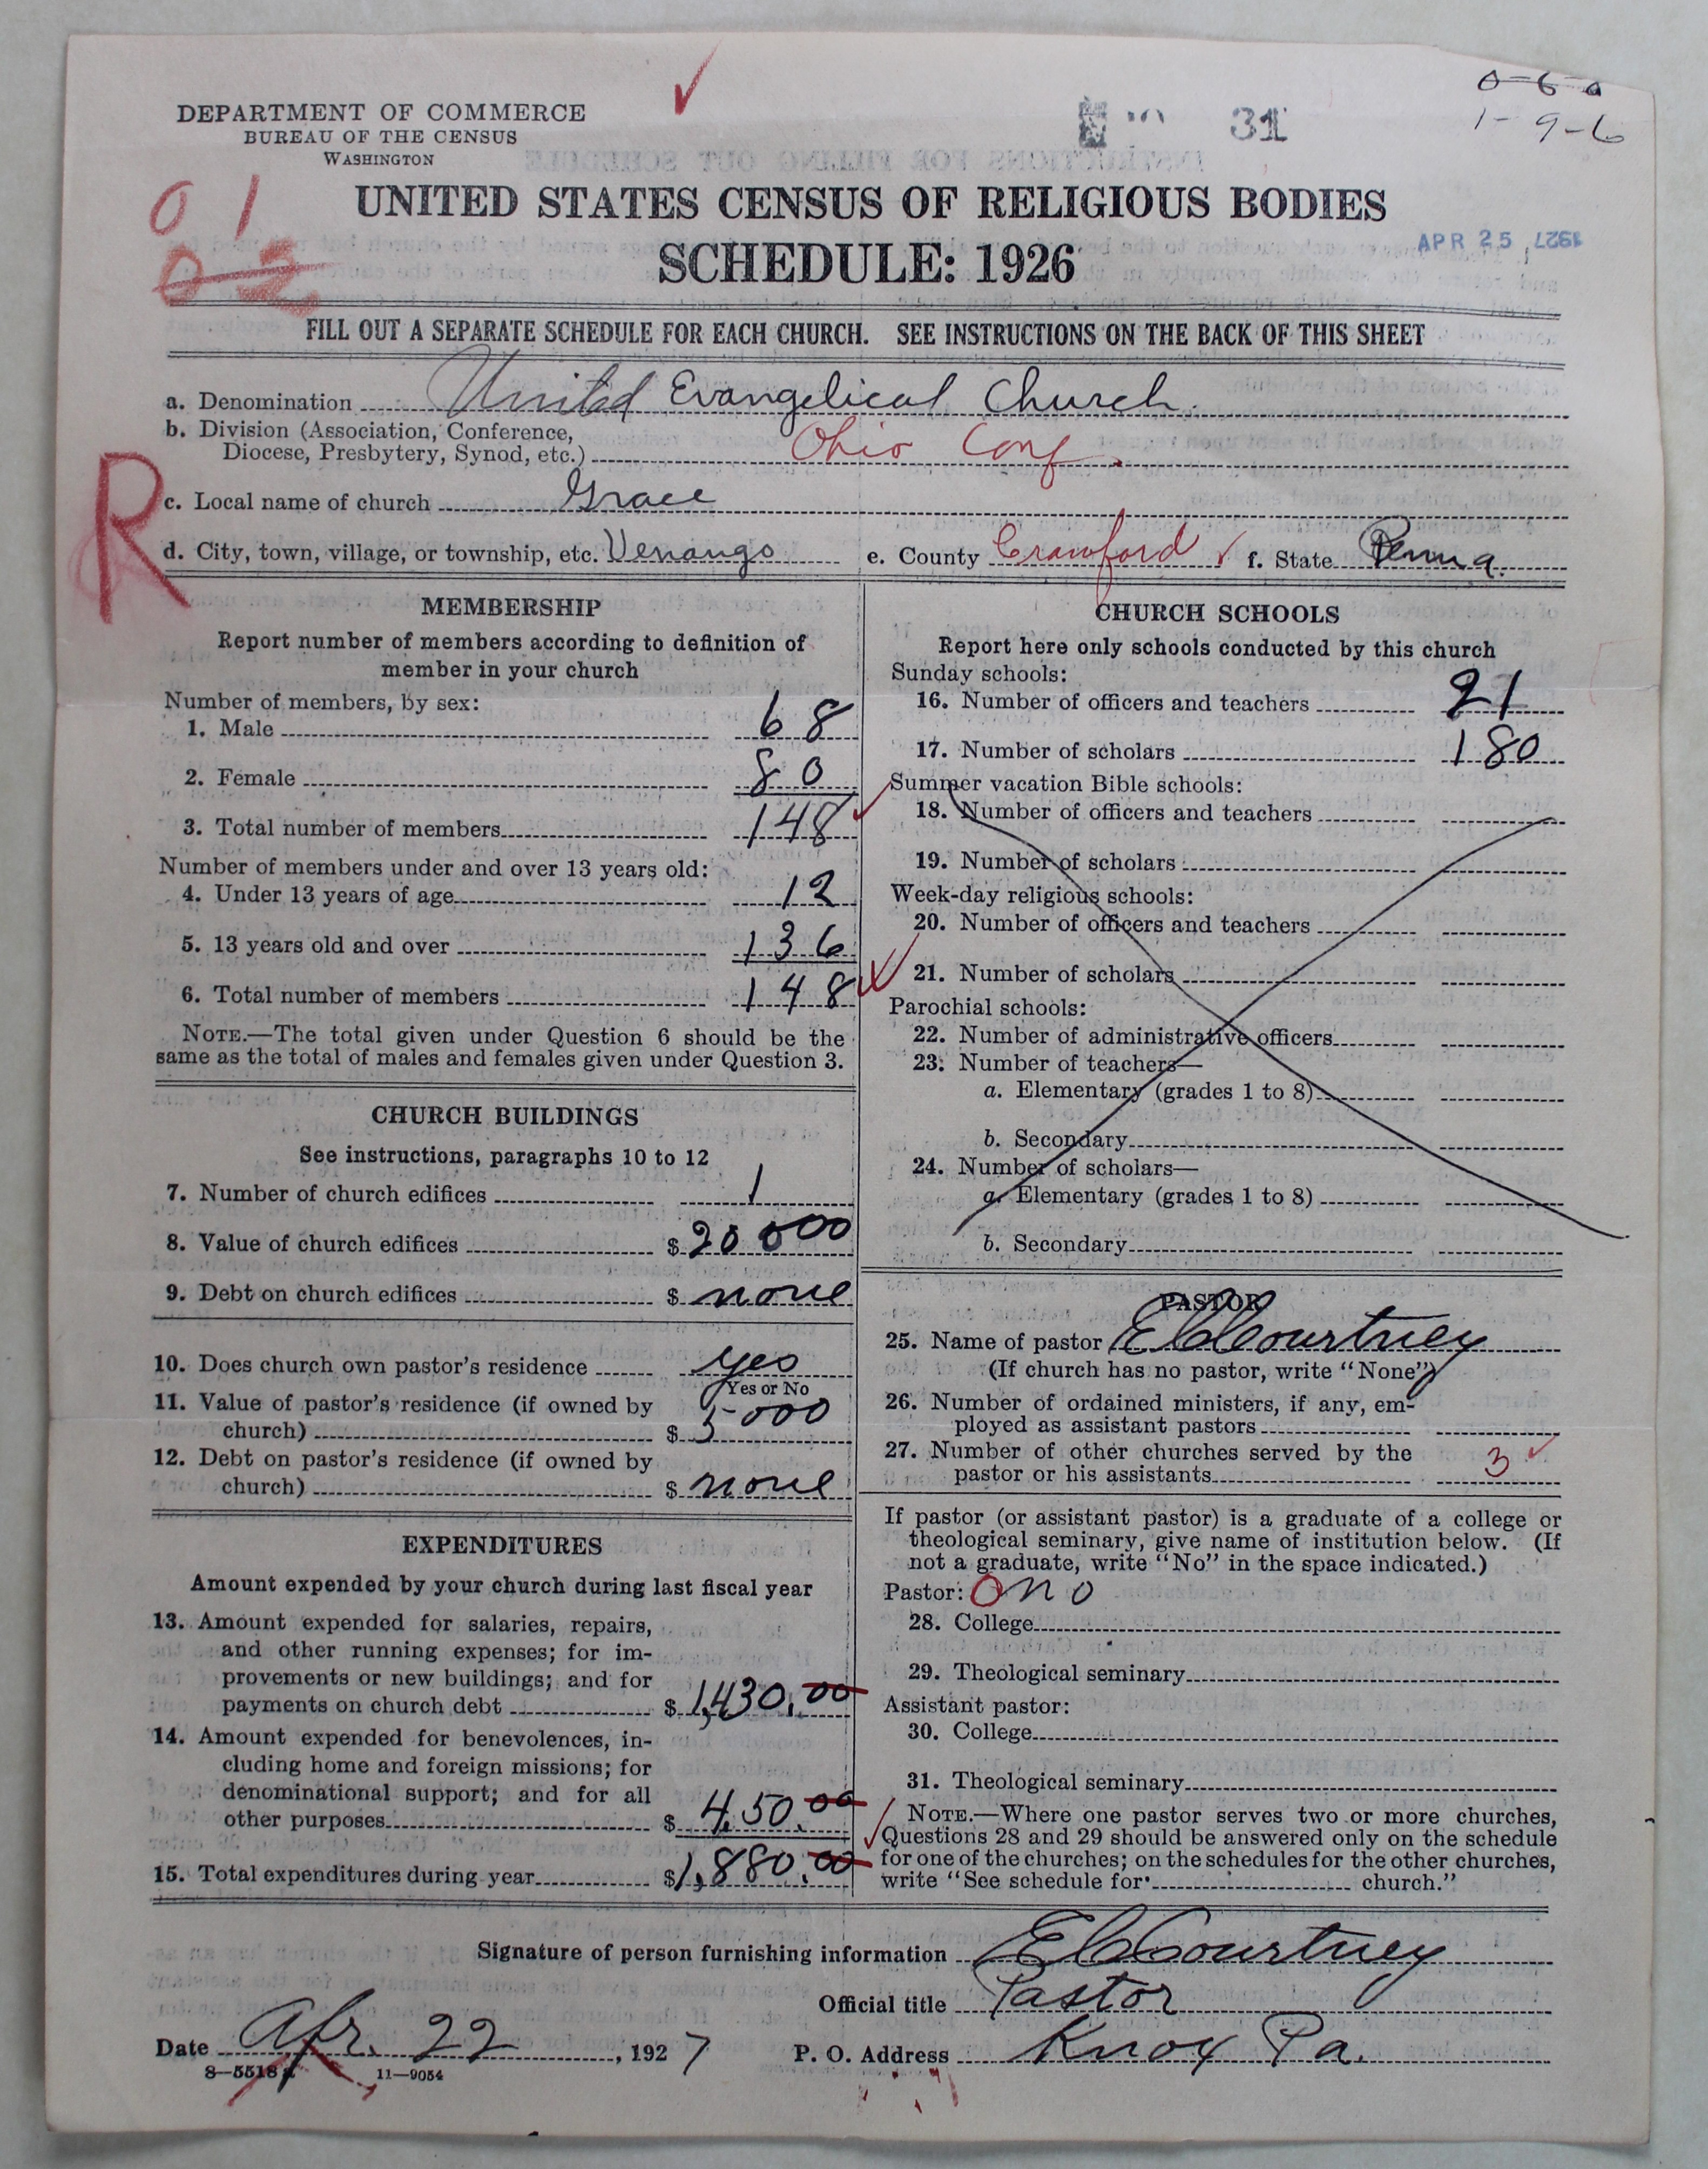 0-6-0
1-9-6
31
DEPARTMENT OF COMMERCE
BUREAU OF THE CENSUS
WASHINGTON
0 1
0 2
UNITED STATES CENSUS OF RELIGIOUS BODIES
SCHEDULE: 1926
APR 25 1927
FILL OUT A SEPARATE SCHEDULE FOR EACH CHURCH. SEE INSTRUCTIONS ON THE BACK OF THIS SHEET
a. Denomination United Evangelical Church
b. Division (Association, Conference,
Diocese, Presbytery, Synod, etc.) Ohio Conf.
R
c. Local name of church Grace
d. City, town, village, or township, etc. Venango e. County Crawford f. State Penna.
MEMBERSHIP
Report number of members according to definition of
member in your church
Number of members, by sex:
1. Male 68
2. Female 80
3. Total number of members 148
Number of members under and over 13 years old:
4. Under 13 years of age 12
5. 13 years old and over 136
6. Total number of members 148
NOTE.—The total given under Question 6 should be the
same as the total of males and females given under Question 3.
CHURCH BUILDINGS
See instructions, paragraphs 10 to 12
7. Number of church edifices 1
8. Value of church edifices $ 20 000
9. Debt on church edifices $ none
10. Does church own pastor's residence yes
Yes or No
11. Value of pastor's residence (if owned by
church) $ 5000
12. Debt on pastor's residence (if owned by
church) $ none
EXPENDITURES
Amount expended by your church during last fiscal year
13. Amount expended for salaries, repairs,
and other running expenses; for im-
provements or new buildings; and for
payments on church debt $ 1,430.00
14. Amount expended for benevolences, in-
cluding home and foreign missions; for
denominational support; and for all
other purposes $ 450.00
15. Total expenditures during year $ 1,880.00
CHURCH SCHOOLS
Report here only schools conducted by this church
Sunday schools:
16. Number of officers and teachers 21
17. Number of scholars 180
Summer vacation Bible schools:
18. Number of officers and teachers
19. Number of scholars
Week-day religious schools:
20. Number of officers and teachers
21. Number of scholars
Parochial schools:
22. Number of administrative officers
23. Number of teachers—
a. Elementary (grades 1 to 8)
b. Secondary
24. Number of scholars—
a. Elementary (grades 1 to 8)
b. Secondary
PASTOR
25. Name of pastor E C Courtney
(If church has no pastor, write "None")
26. Number of ordained ministers, if any, em-
ployed as assistant pastors
27. Number of other churches served by the
pastor or his assistants 3
If pastor (or assistant pastor) is a graduate of a college or
theological seminary, give name of institution below. (If
not a graduate, write "No" in the space indicated.)
Pastor: O no
28. College
29. Theological seminary
Assistant pastor:
30. College
31. Theological seminary
NOTE.—Where one pastor serves two or more churches,
Questions 28 and 29 should be answered only on the schedule
for one of the churches; on the schedules for the other churches,
write "See schedule for church."
Signature of person furnishing information E C Courtney
Official title Pastor
Date Apr. 22, 1927 P. O. Address Knox Pa.
8—5518 a 11—9054